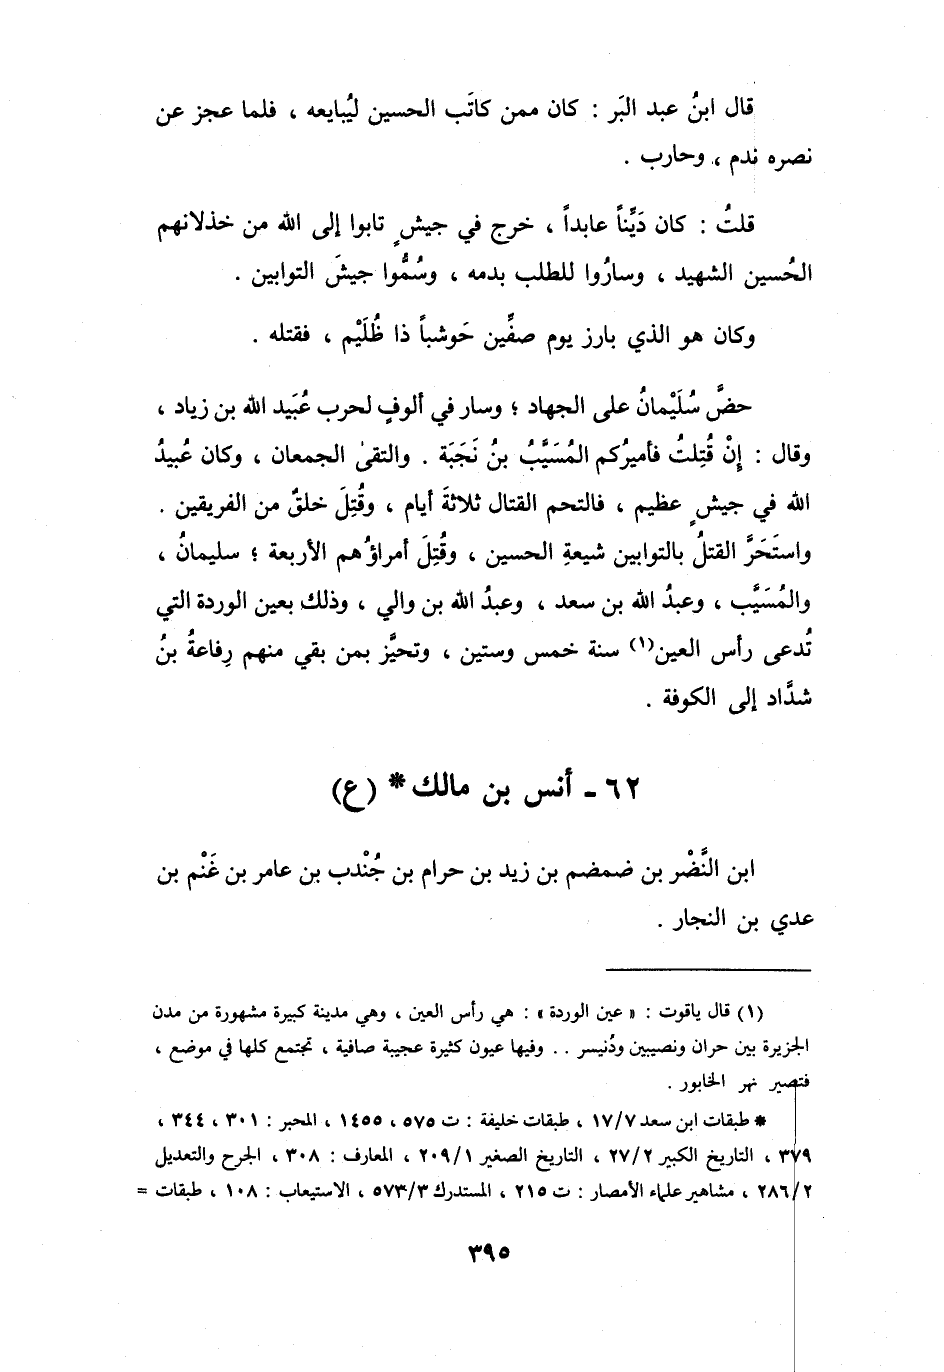 قال ابنُ عبد البَر : كان ممن كاتَب الحسين ليُبايعه ، فلما عجز عن
نصره ندم ، وحارب .
قلتُ : كان دَيِّناً عابداً ، خرج في جيشٍ تابوا إلى الله من خذلانهم
الحُسين الشهيد ، وسارُوا للطلب بدمه ، وسُمُّوا جيشَ التوابين .
وكان هو الذي بارز يوم صفِّين حَوشباً ذا ظُلَيْم ، فقتله .
حضَّ سُلَيْمانُ على الجهاد ؛ وسار في ألوفٍ لحرب عُبَيد الله بن زياد ،
وقال : إِنْ قُتِلتُ فأميرُكم المُسَيَّبُ بنُ نَجَبَة . والتقىٰ الجمعان ، وكان عُبيدُ
الله في جيشٍ عظيم ، فالتحم القتال ثلاثةَ أيام ، وقُتِلَ خلقٌ من الفريقين .
واستَحَرَّ القتلُ بالتوابين شيعةِ الحسين ، وقُتِلَ أمراؤُهم الأربعة ؛ سليمانُ ،
والمُسَيَّب ، وعبدُ الله بن سعد ، وعبدُ الله بن والي ، وذلك بعين الوردة التي
تُدعى رأس العين(١) سنة خمس وستين ، وتحيَّز بمن بقي منهم رِفاعةُ بنُ
شدَّاد إلى الكوفة .
٦٢ - أنس بن مالك * (ع)
ابن النَّضْر بن ضمضم بن زيد بن حرام بن جُنْدب بن عامر بن غَنْم بن
عدي بن النجار .
(١) قال ياقوت : « عين الوردة » : هي رأس العين ، وهي مدينة كبيرة مشهورة من مدن
الجزيرة بين حران ونصيبين ودُنيسر . . وفيها عيون كثيرة عجيبة صافية ، تجتمع كلها في موضع ،
فتصير نهر الخابور .
* طبقات ابن سعد ١٧/٧ ، طبقات خليفة : ت ٥٧٥ ، ١٤٥٥ ، المحبر : ٣٠١ ، ٣٤٤ ،
٣٧٩ ، التاريخ الكبير ٢٧/٢ ، التاريخ الصغير ٢٠٩/١ ، المعارف : ٣٠٨ ، الجرح والتعديل
٢٨٦/٢ ، مشاهير علماء الأمصار : ت ٢١٥ ، المستدرك ٥٧٣/٣ ، الاستيعاب : ١٠٨ ، طبقات =
٣٩٥